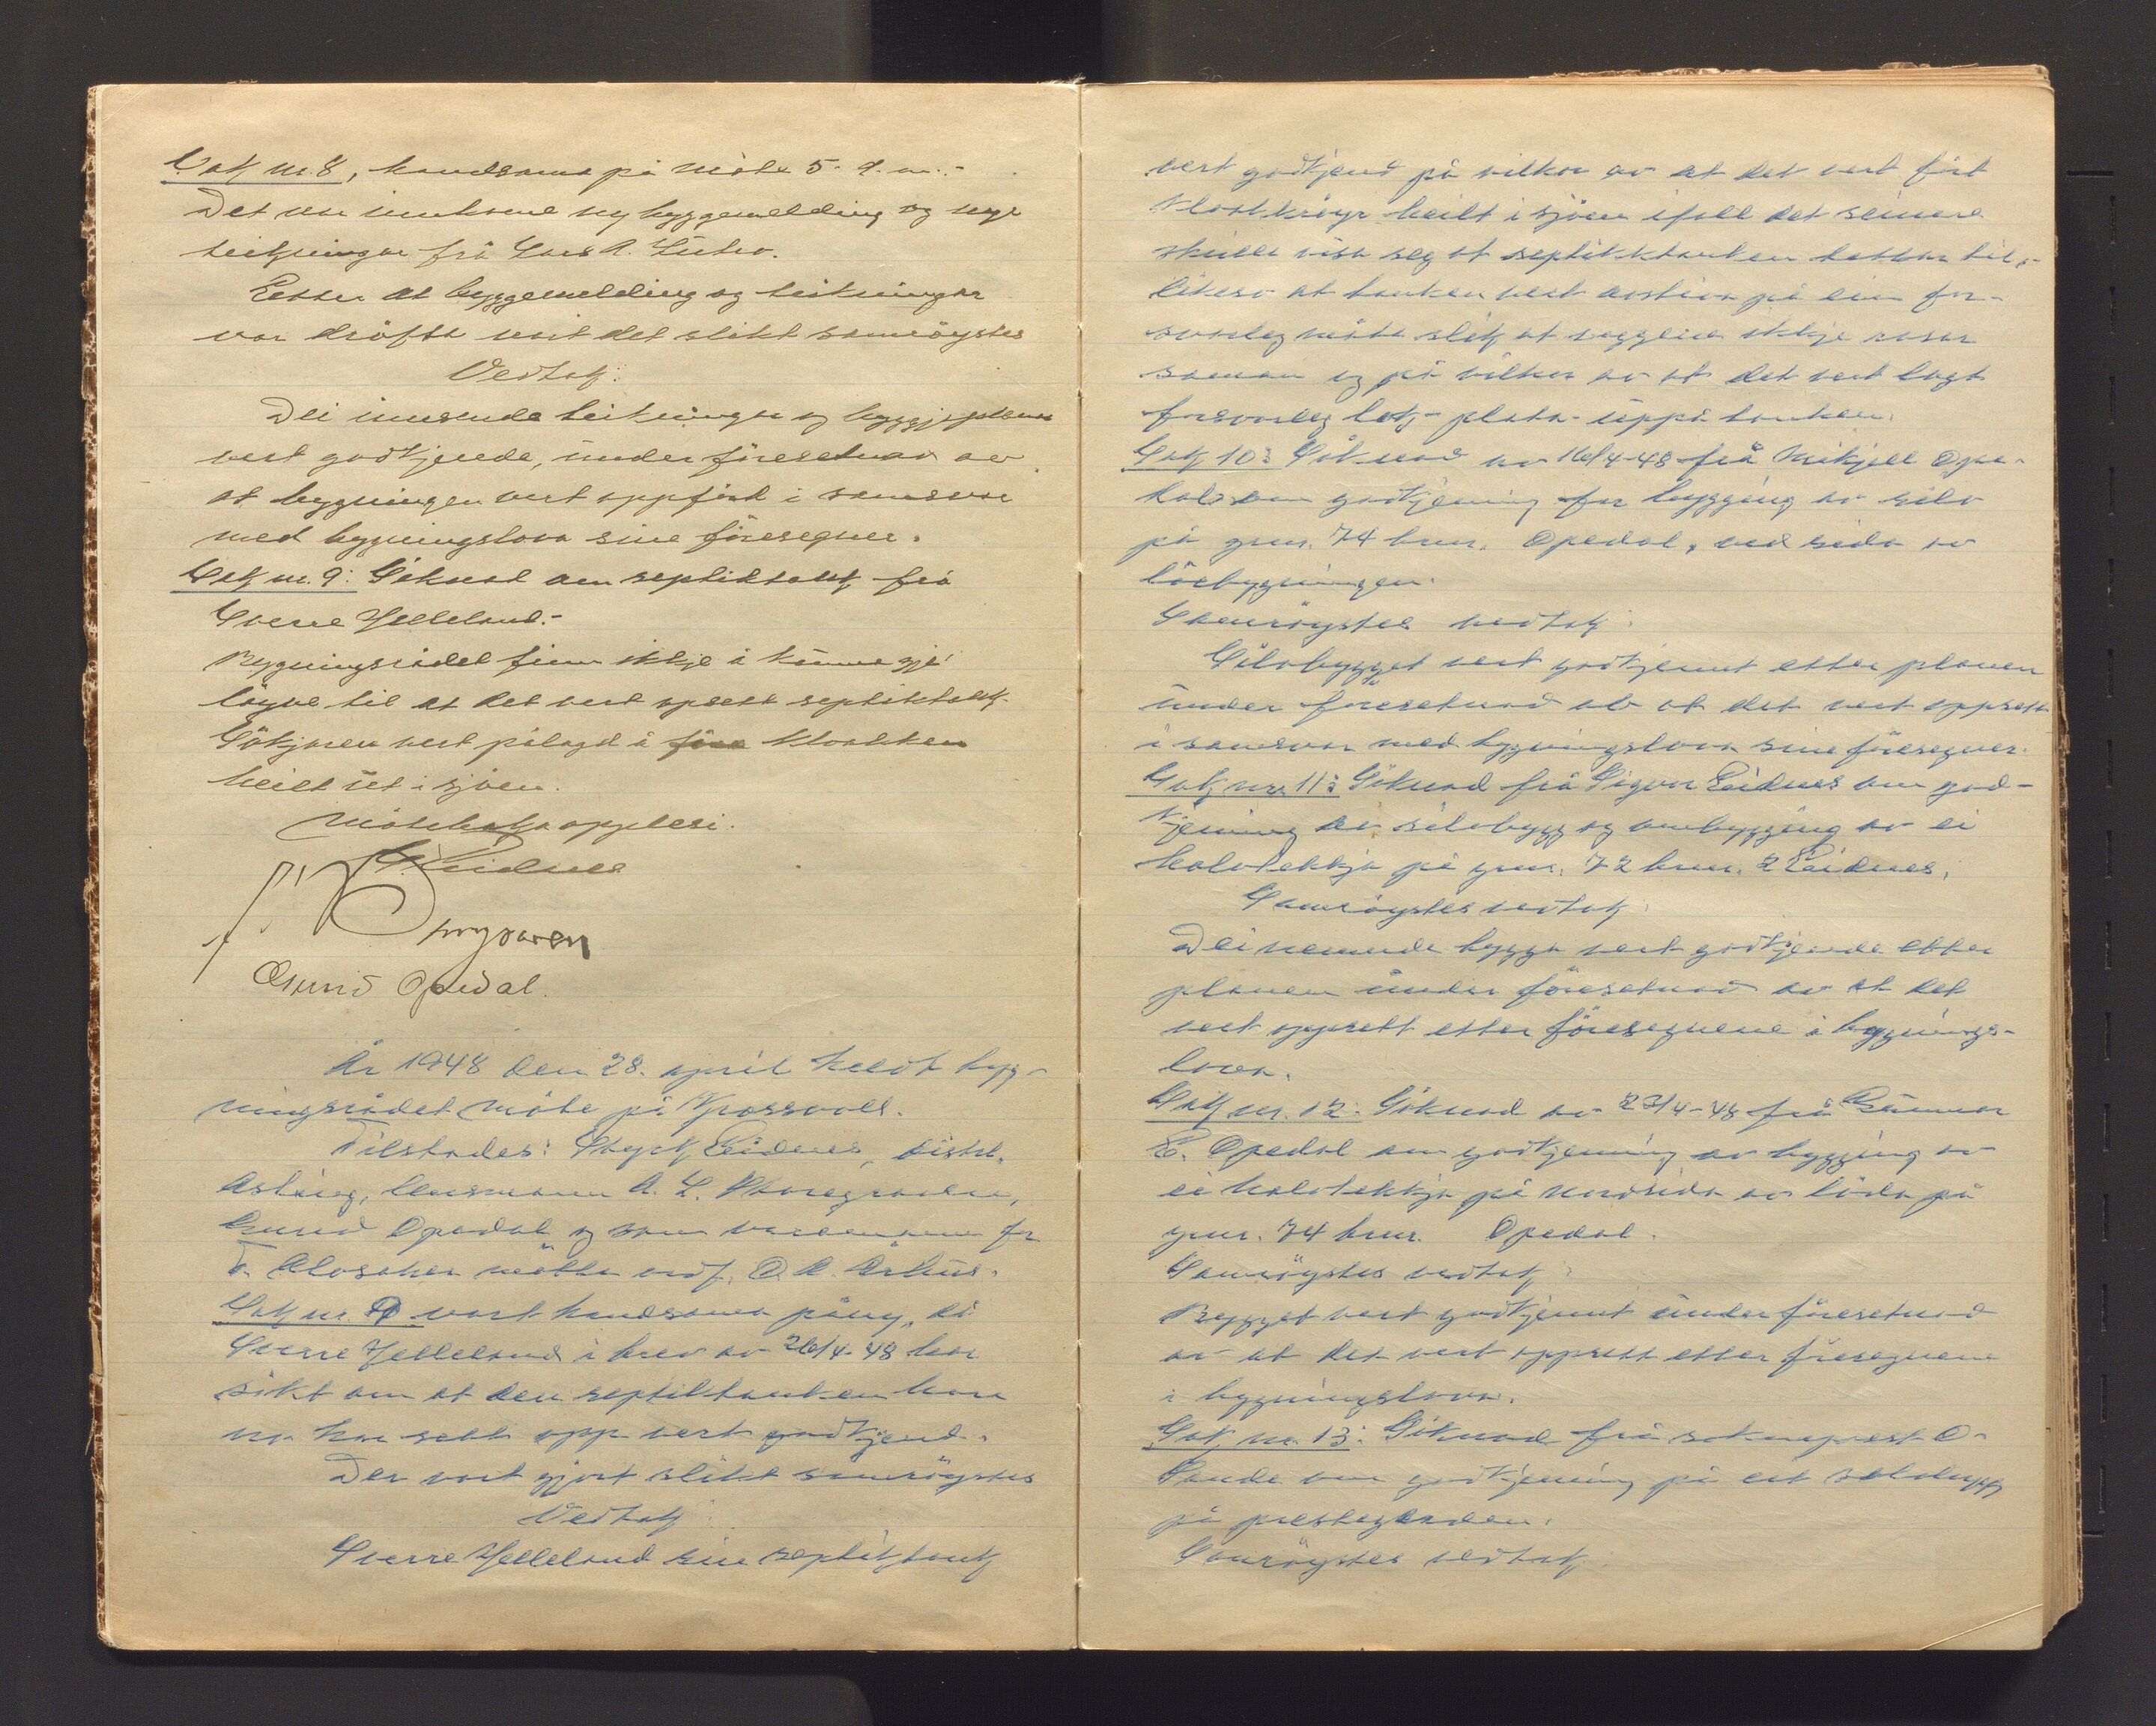 Sak nr. 8, handsama på møte 5. d.m.-
Det var innkome ny byggemelding og nye
teikningar frå Lars A. Lutro.
Etter at byggemelding og teikningar
var dröfta vart det slikt samröystes
Vedtak:
Dei innsende teikningar og byggjeplanar
vert godkjende, under föresetnad av
at bygningen vert oppförd i samsvar
med bygningslova sine föresegner.
Sak nr. 9: Söknad om septiktank frå
Sverre Helleland.-
Bygningsrådet finn ikkje å kunne gje
löyve til at det vert opsett septiktank.
Sökjaren vert pålagd å föra kloakken
heilt ut i sjöen.
Möteboka opplesi.
S. Eidnes
Gunnd Opedal.
År 1948 den 28. april heldt byg-
ningsrådet möte på Krossvoll.
Tilstades: Styrk Eidnes, distr.
Åsting, lensmann A. L.
Gunnd Opedal og som varamann for
T. Aloaker mötte vedf. O. A. Århus.
Sak nr. 9 vart handsama påny, då
Sverre Helleland i brev av 26/4-48 har
sökt om at den septiktanken han
no har sett opp vert godkjend.
Der vart gjort slikt samröystes
Vedtak:
Sverre Helleland sin septiktank
vert godkjend på vilkor av at det vert fört
kloakkröyr heilt i sjöen ifall det seinare
skulle visa seg at septikktanken
likeso at tanken vert avstiva på ein for-
svarleg måte slik at veggene ikkje rasar
saman og på vilkor av at det vert lagt
forsvarleg lok-plata uppå tanken.
Sak 10: Söknad av 16/4-48 frå Mikjell Ope-
dal om godkjenning for bygging av silo
på gnr. 74 bnr. Opedal, ved sida av
löebygningen.
Samröystes vedtak:
Silobygget vert godkjennt etter planen
under föresetnad av at det vert oppsett
i samsvar med bygningslova sine föresegner.
Sak nr. 11: Söknad frå Sigvor Eidnes om god-
kjenning av silobygg og ombygging av ei
halvtekkja på gnr. 72 bnr. 2 Eidnes.
Samröystes vedtak:
Dei nemnde bygga vert godkjende etter
planen under föresetnad av at det
vert oppsett etter föresegnene i bygnings-
lova.
Sak nr. 12: Söknad av 23/4-48 frå Gunnar
E. Opedal om godkjenning av bygging av
ei halvtekkja på nordsida av löda på
gnr. 74 bnr. Opedal.
Samröystes vedtak:
Bygget vert godkjennt under föresetnad
av at det vert oppsett etter föresegnene
i bygningslova.
Sak nr. 13: Söknad frå sokneprest O.
Sande om godkjenning på eit silobygg
på prestegarden.
Samröystes vedtak: